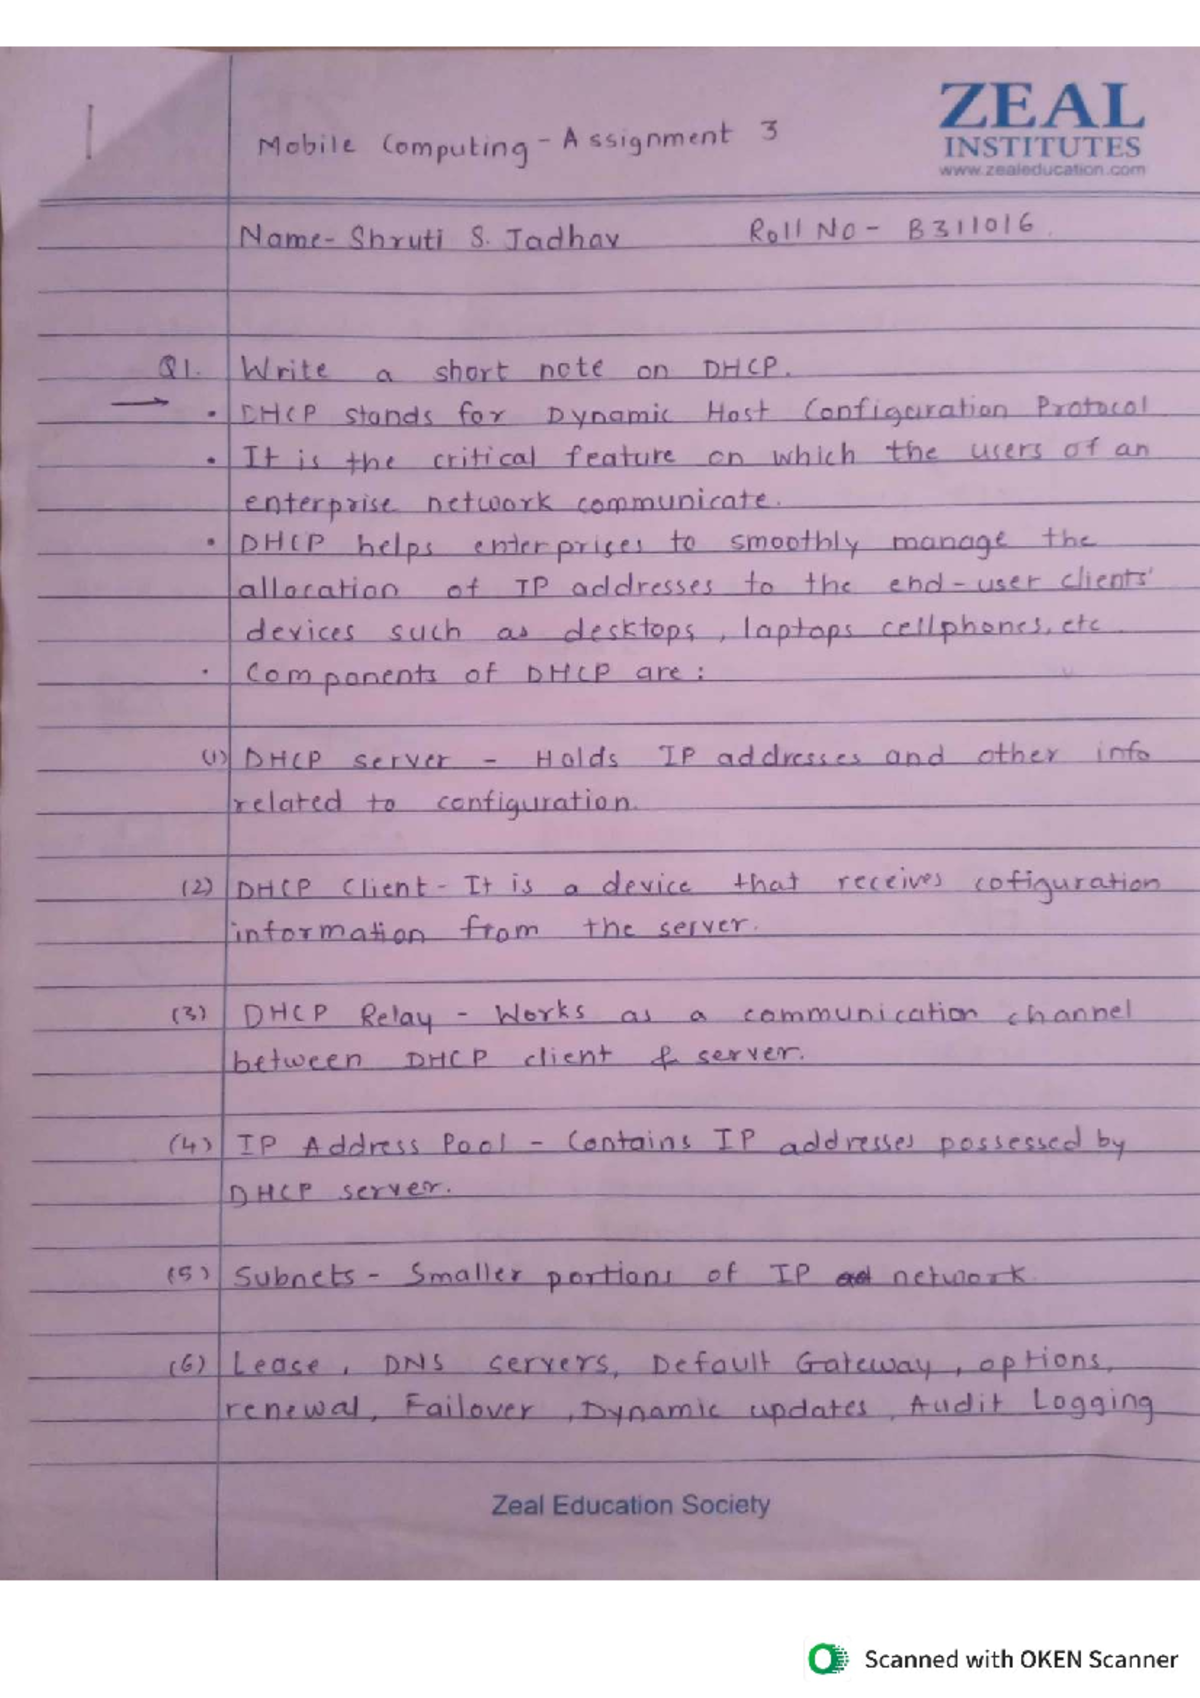 ZEAL
INSTITUTES
www.zealeducation.com
Mobile Computing - Assignment 3
Name- Shruti S. Jadhav Roll No - B311016.
Q1. Write a short note on DHCP.
→ • DHCP stands for Dynamic Host Configuration Protocol
• It is the critical feature on which the users of an
enterprise network communicate.
• DHCP helps enterprises to smoothly manage the
allocation of IP addresses to the end-user clients'
devices such as desktops, laptops cellphones, etc
• Components of DHCP are:
(1) DHCP server - Holds IP addresses and other info
related to configuration.
(2) DHCP Client - It is a device that receives cofiguration
information from the server.
(3) DHCP Relay - Works as a communication channel
between DHCP client & server.
(4) IP Address Pool - Contains IP addresses possessed by
DHCP server.
(5) Subnets - Smaller portions of IP network.
(6) Lease, DNS servers, Default Gateway, options,
renewal, Failover, Dynamic updates, Audit Logging
Zeal Education Society
Scanned with OKEN Scanner